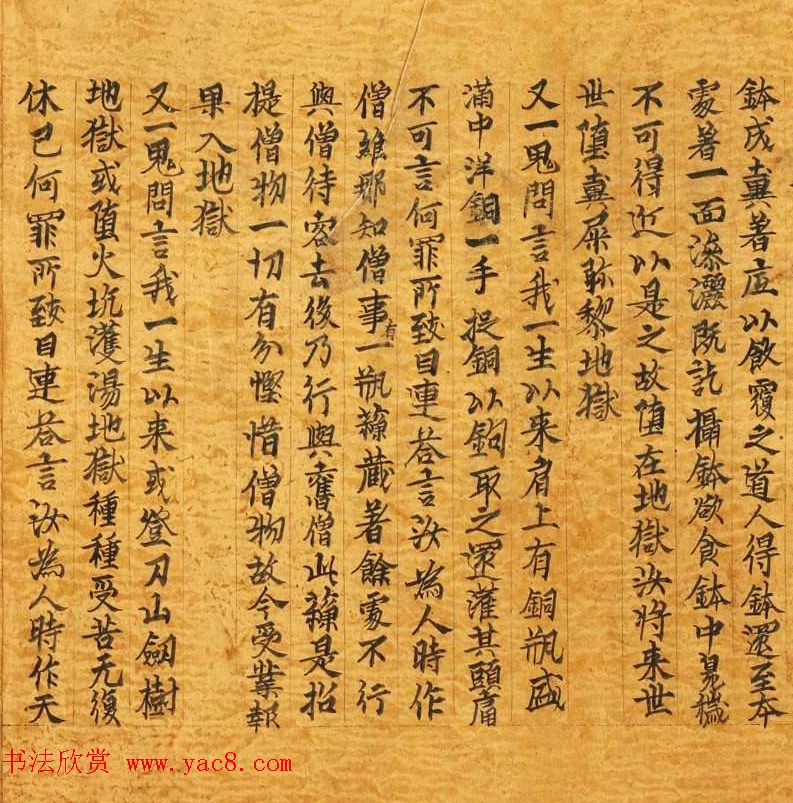 鉢成糞著底以飯覆之道人得鉢還至本
處著一面澡灑既訖攝鉢欲食鉢中臭穢
不可得近以是之故堕在地獄汝将来世
世堕糞屎弥黎地獄
又一鬼問言我一生以来肩上有銅瓶盛
滿中洋銅一手捉銅以鉤取之還灌其頭痛
不可言何罪所致目連荅言汝為人時作
僧維那知僧事有一瓶蘓藏著餘處不行
與僧待客去後乃行與舊僧此蘓是招
提僧物一切有分慳惜僧物故今受業報
果入地獄
又一鬼問言我一生以来或登刀山劔樹
地獄或堕火坑濩湯地獄種種受苦无復
休已何罪所致目連荅言汝為人時作天
书法欣赏 www.yac8.com